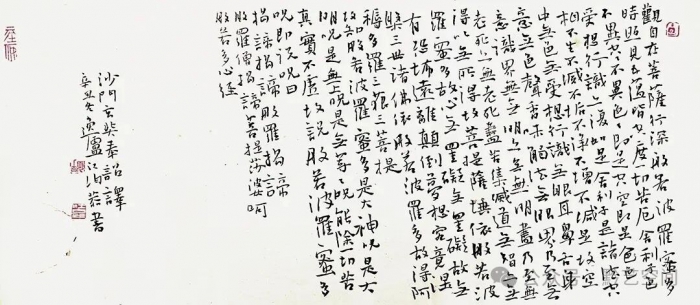 觀自在菩薩行深般若波羅蜜多
時照見五蘊皆空度一切苦厄舍利子色
不異空空不異色色即是空空即是色
受想行識亦復如是舍利子是諸法空
相不生不滅不垢不淨不增不減是故空
中無色無受想行識無眼耳鼻舌身
意無色聲香味觸法無眼界乃至無
意識界無無明亦無無明盡乃至無
老死亦無老死盡無苦集滅道無智亦無
得以無所得故菩提薩埵依般若波
羅蜜多故心無罣礙無罣礙故無
有恐怖遠離顛倒夢想究竟涅
槃三世諸佛依般若波羅蜜多故得阿
耨多羅三藐三菩提
故知般若波羅蜜多是大神咒是大
明咒是無上咒是無等等咒能除一切苦
真實不虛故說般若波羅蜜多
咒即說咒曰
揭諦揭諦般羅揭諦
般羅僧揭諦菩提莎婆呵
般若多心經
沙門玄奘奉詔譯
辛丑冬逸廬江
書
公众号
空间